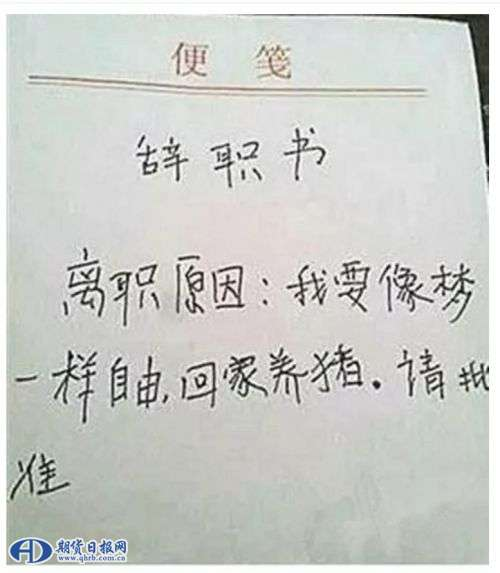 便 笺
辞职书
离职原因：我要像梦
一样自由，回家养猪。请批
准
期货日报网
www.qhrb.com.cn